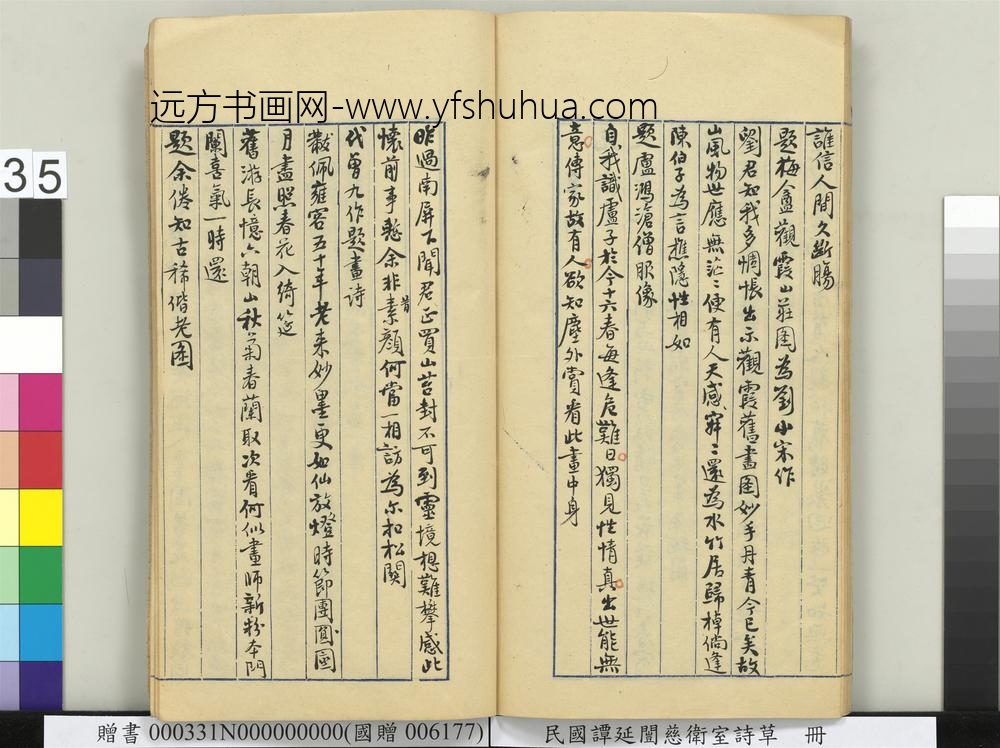 誰信人間久斷腸
題梅盦觀霞山莊圖為劉小宋作
劉君知我多惆悵出示觀霞舊畫圖妙手丹青今已矣故
山風物世應無茫〻便有人天感寂〻還為水竹居歸棹倘逢
陳伯子為言樵隱性相如
題盧鴻滄僧服像
自我識盧子於今十六春每逢危難日獨見性情真出世能無
意傳家故有人欲知塵外賞看此畫中身
昨過南屏下聞君正買山苔封不可到靈境想難攀感此
懷前事愁余非昔素顏何當一相訪為尔扣松關
代曾九作題畫詩
黻佩雍容五十年老來妙墨更如仙放燈時節團圞
月盡照春花入綺筵
舊游長憶六朝山秋菊春蘭取次看何似畫師新粉本門
闌喜氣一時還
題余倦知古稀偕老圖
远方书画网-www.yfshuhua.com
35
贈書 000331N000000000(國贈 006177)
民國譚延闓慈衛室詩草 冊